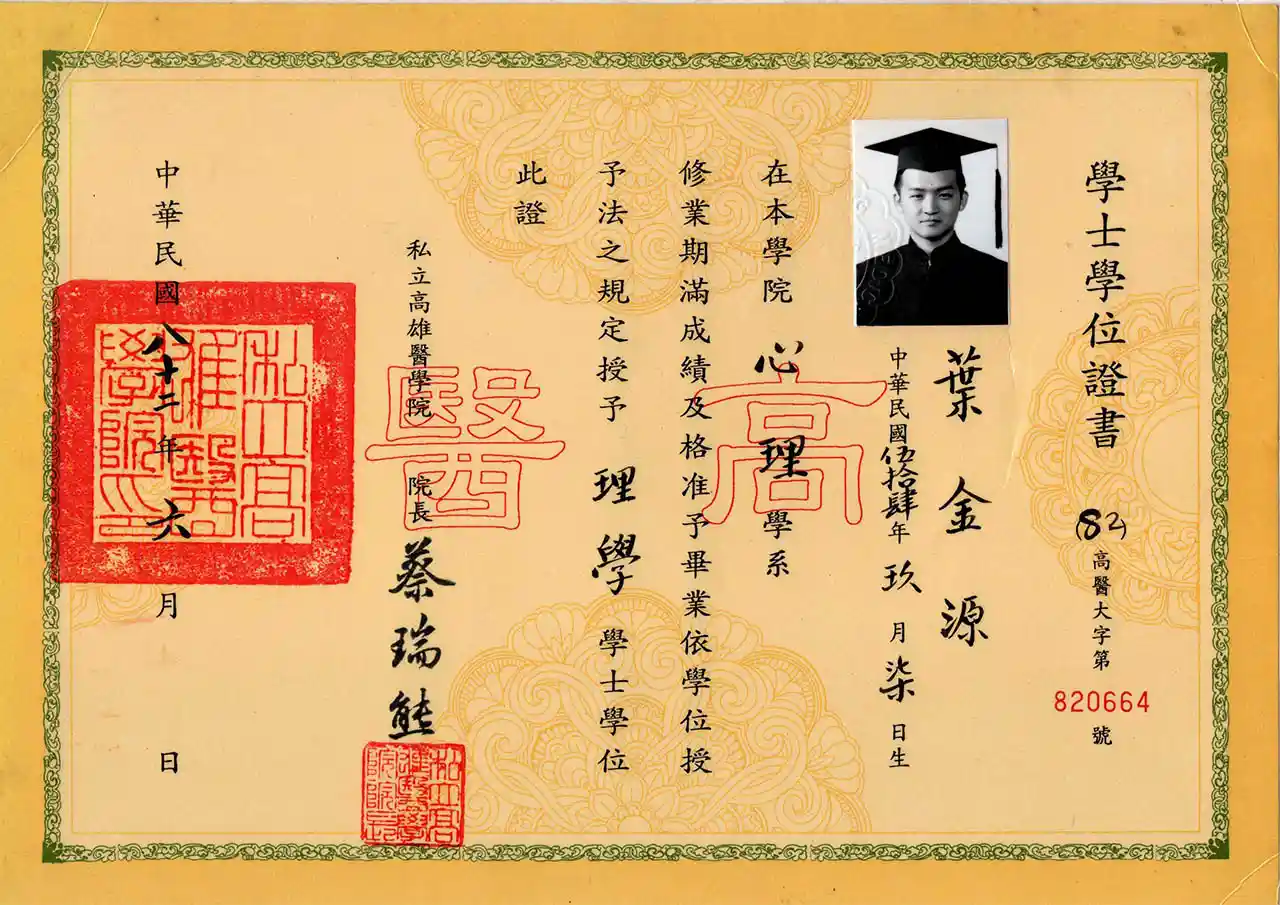 學士學位證書
(82)高醫大字第820664號
葉金源
中華民國伍拾肆年玖月柒日生
在本學院心理學系
修業期滿成績及格准予畢業依學位授
予法之規定授予理學學士學位
此證
私立高雄醫學院院長蔡瑞熊
中華民國八十二年六月 日
高醫
私立高雄醫學院印
私立高雄醫學院院長